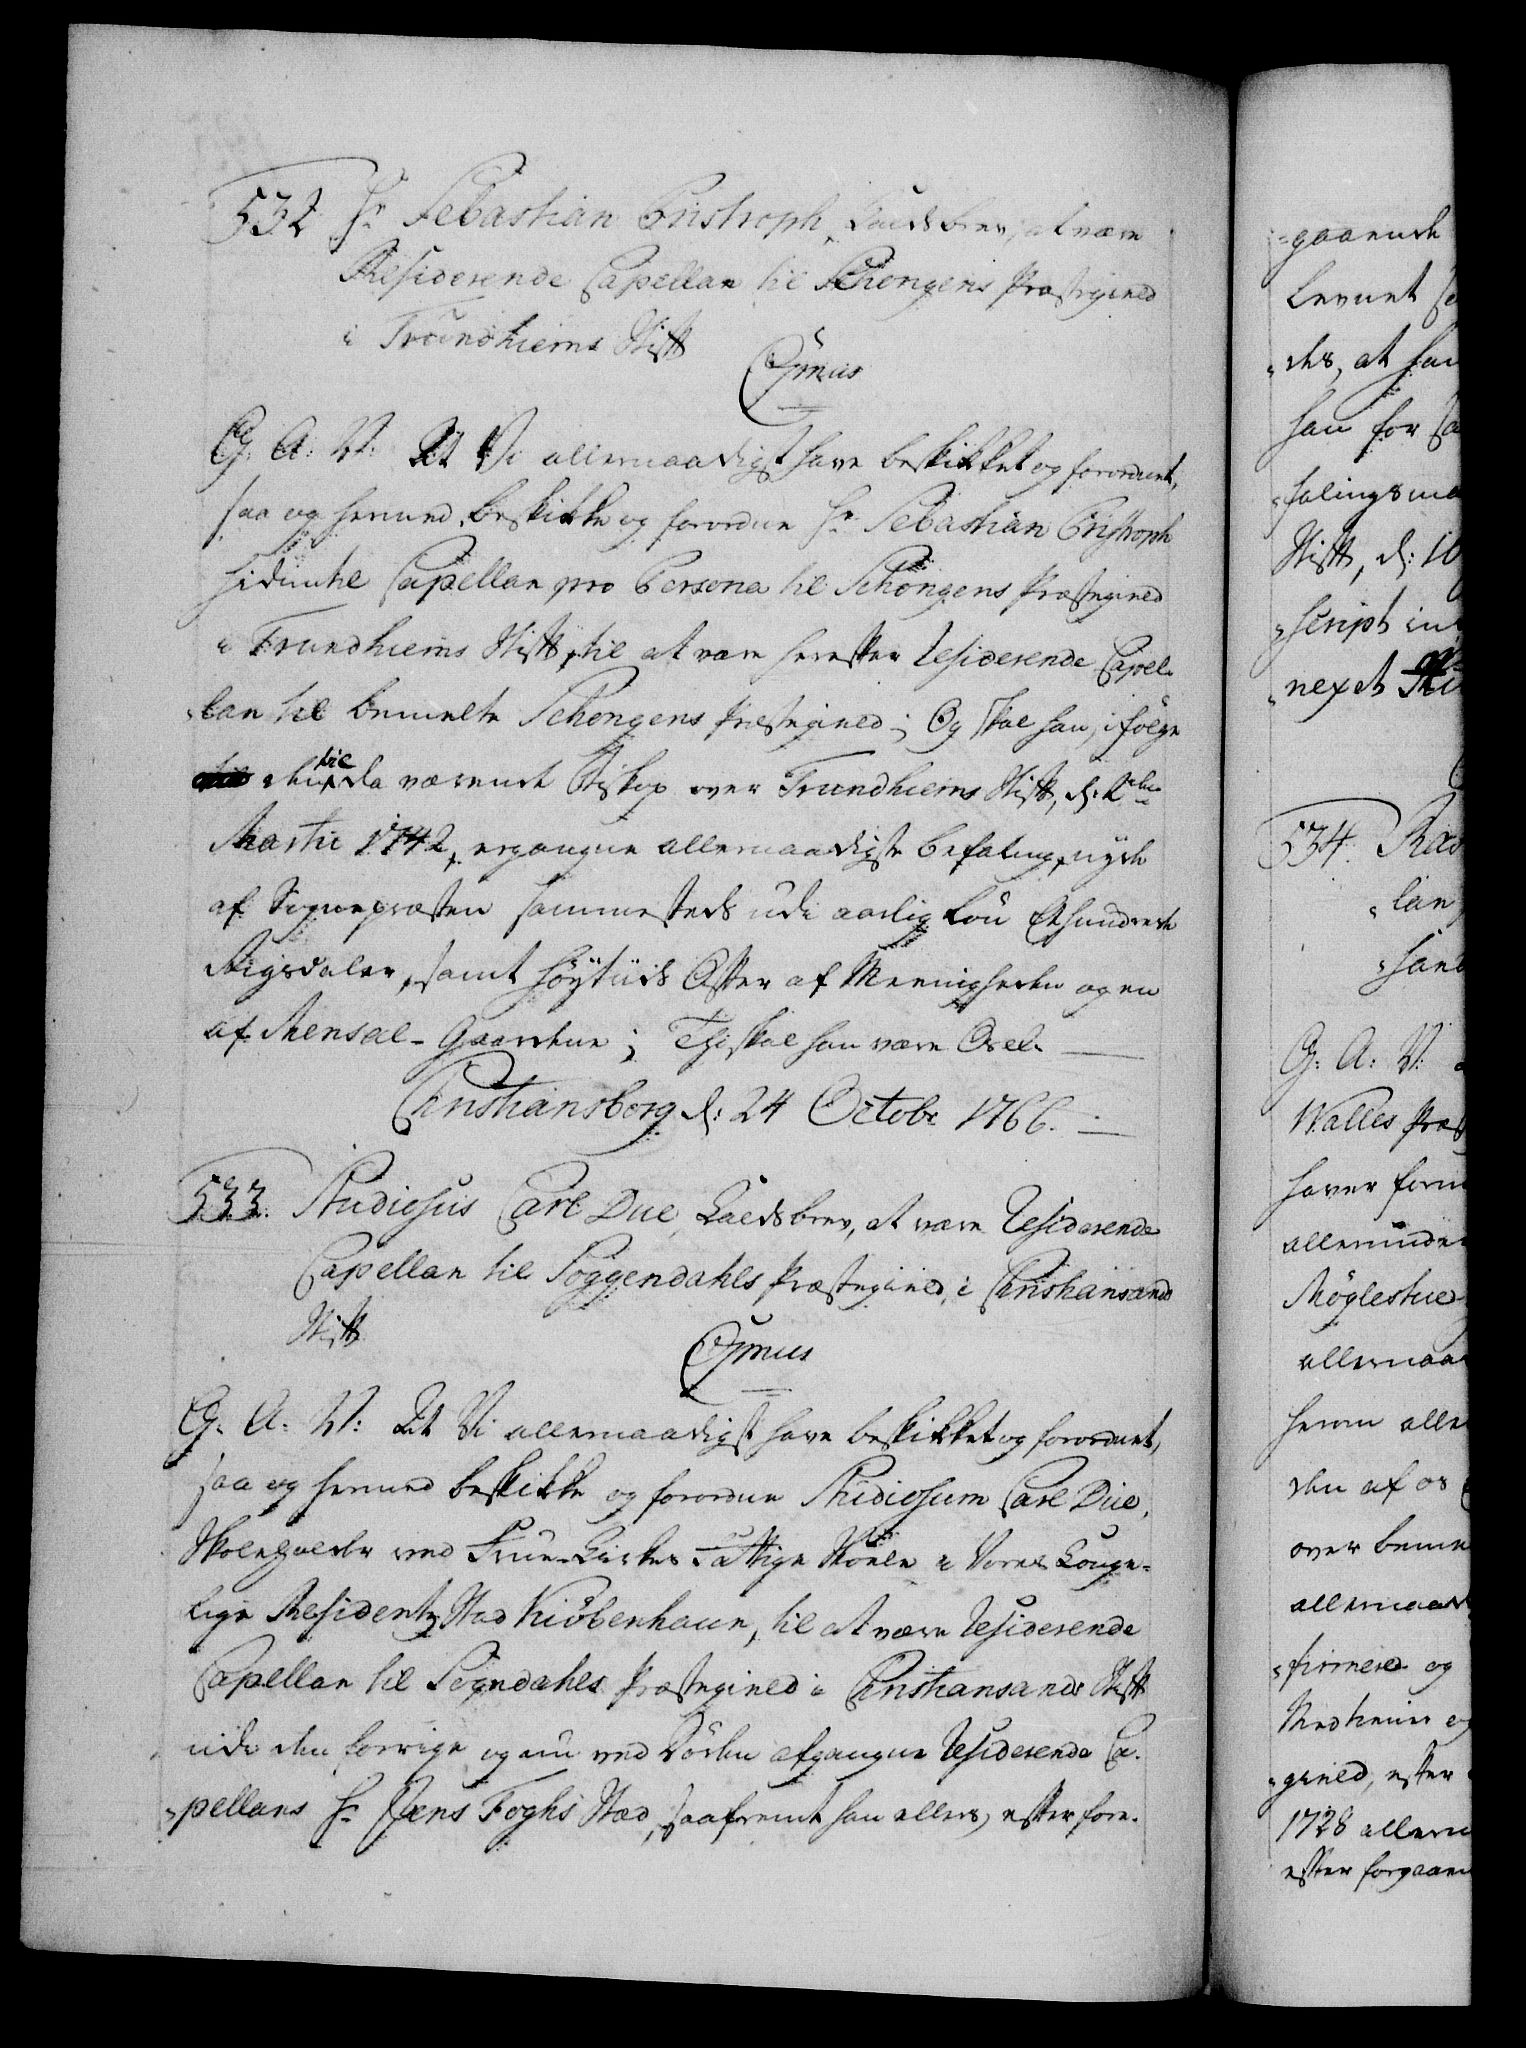 532 Hr Sebastian Cristroph, Kaldsbrev, at være
Residerende Capellan til Schongens Præstegield
i Trundhiems Stift
C7mus
G: A: V: At Vi allernaadigst have beskikket og forordnet,
saa og hermed beskikke og forordne Hr Sebastian Cristroph
hidindtil Capellan pro Persona til Schongens Præstegield
i Trundhiems Stift, til at være herefter Residerende Capel-
lan til bemelte Schongens Præstegield; Og skal han, i følge
til da værende Biskop over Trundhiems Stift, d: 2den
Martii 1742, ergangne allernaadigste befaling, nyde
af Sognepræsten sammesteds udi aarlig Løn Et hundrede
Rigsdaler, samt Høytiids Offer af Meenigheden og en
af Mensal-Gaardene; Thi skal han være Os etc.
Christiansborg d: 24 Octobr 1766.
533. Studiosus Carl Due, Kaldsbrev, at være Residerende
Capellan til Soggendahls Præstegield, i Christiansands
Stift
C7mus
G: A: V: At Vi allernaadigst have beskikket og forordnet,
saa og hermed beskikke og forordne Studiosum Carl Due,
Skoleholder ved Frue-Kirkes Fattige Skoele i Vores Konge-
lige Residentz Stad Kiøbenhaun, til at være Residerende
Capellan til Sogndahls Præstegield i Christiansands Stift
udi den forrige og nu ved Døden afgangne Residerende Ca-
pellans Hr Jens Foghs Sted, saafremt han ellers, efter fore-
gaaende
levnet
des, at han
han for
falings
Stift, d: 10
script
nexet
534. 
lan
G: A: V:
Walles Præst
haver
allerunde
Møglestue
allernaa
herom alle
den af os
over beme
allernaad
firmered og
gield, efter
1728 allern
efter forgaaen